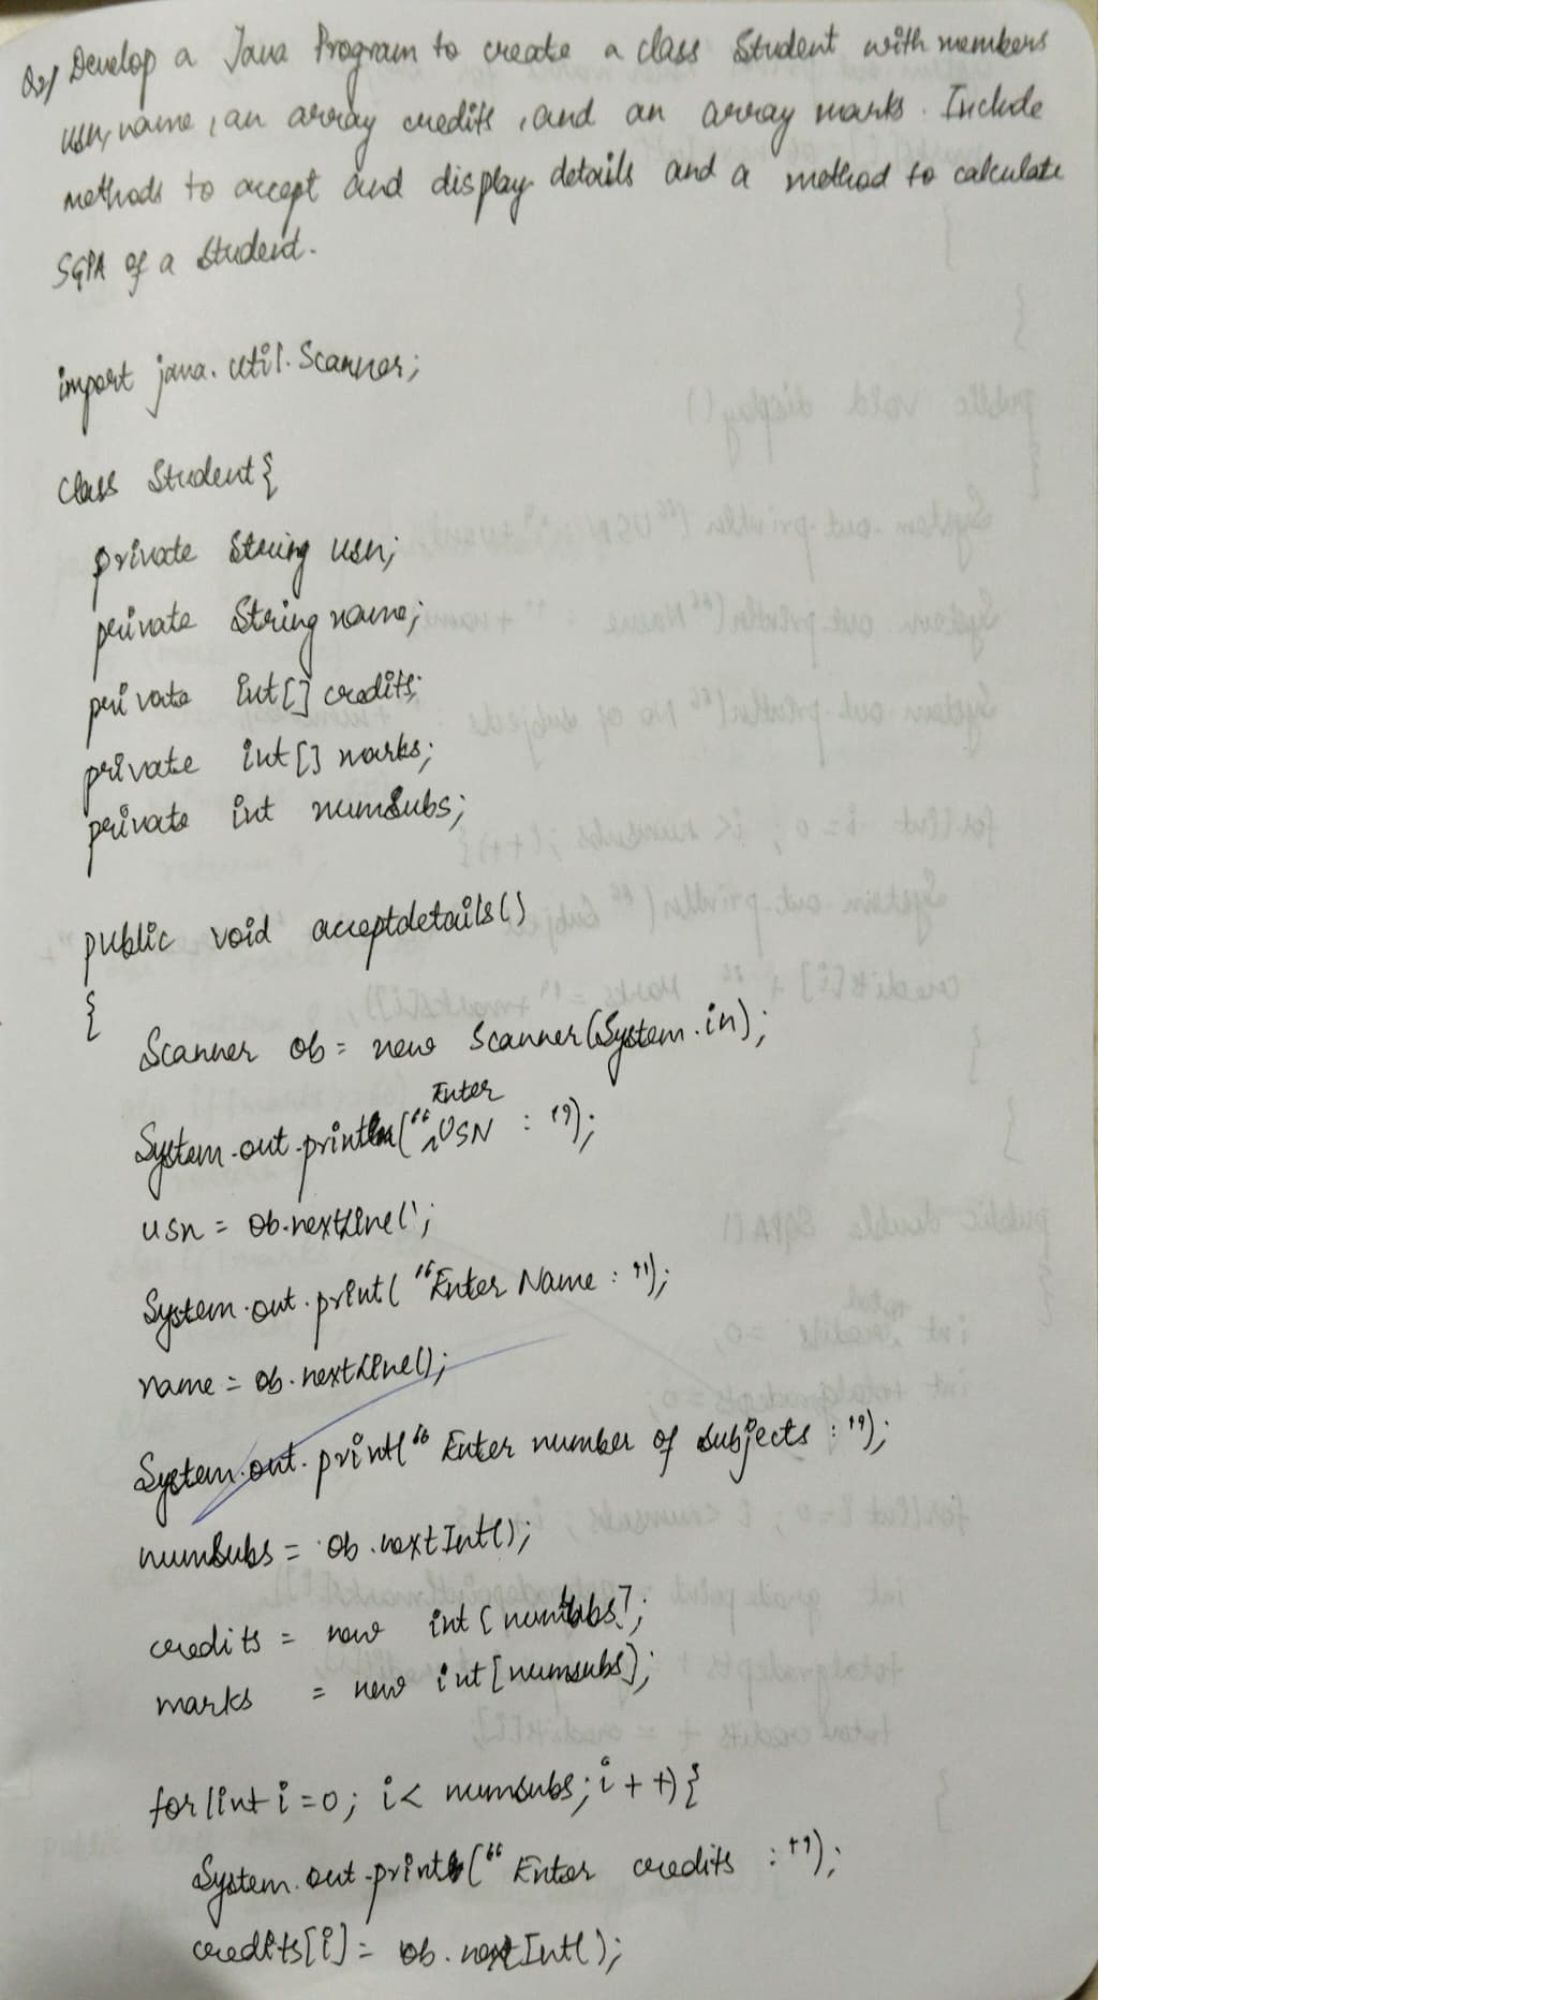 Q2/ Develop a Java Program to create a class Student with members
usn, name, an array credits, and an array marks. Include
methods to accept and display details and a method to calculate
SGPA of a student.
import java.util.Scanner;
class Student{
private String usn;
private String name;
private int[] credits;
private int[] marks;
private int numSubs;
public void acceptdetails()
{
Scanner ob = new Scanner(System.in);
System.out.print("Enter USN : ");
usn = ob.nextLine();
System.out.print("Enter Name : ");
name = ob.nextLine();
System.out.print("Enter number of subjects : ");
numSubs = ob.nextInt();
credits = new int[numSubs];
marks = new int[numsubs];
for(int i=0; i< numsubs; i++){
System.out.print("Enter credits : ");
credits[i] = ob.nextInt();